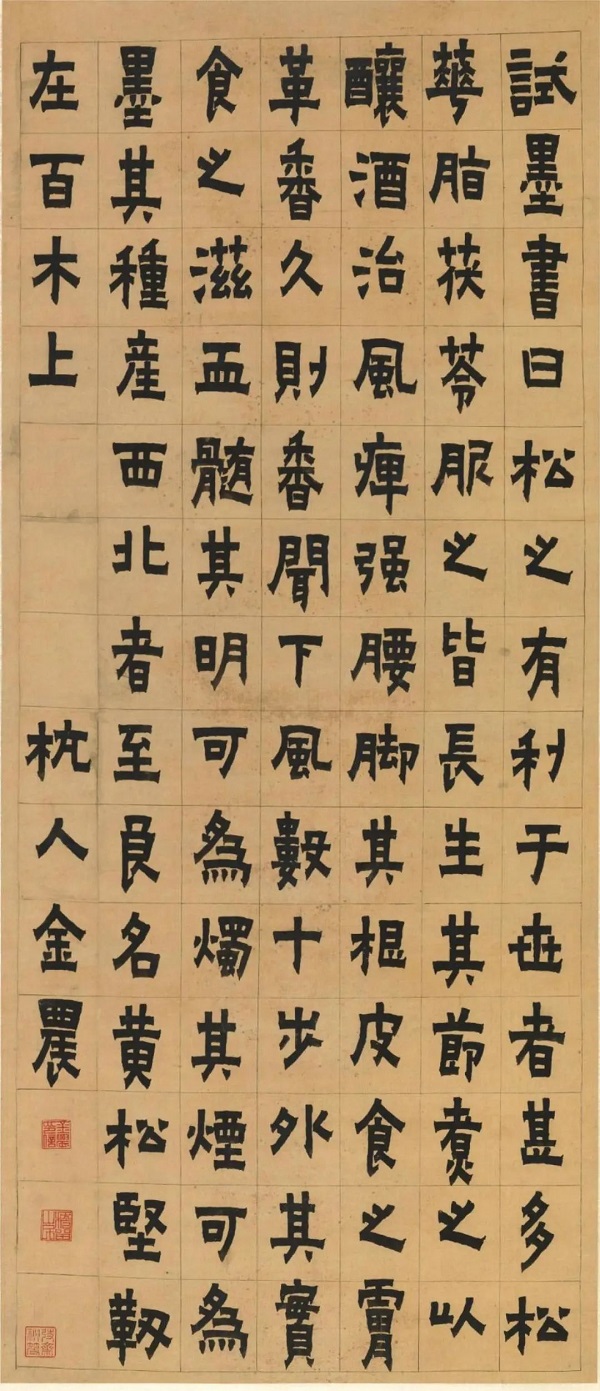 試墨書曰松之有利于世者甚多松
華脂茯苓服之皆長生其節煮之以
釀酒治風痺强腰脚其根皮食之膚
革香久則香聞下風數十步外其實
食之滋血髓其明可為燭其煙可為
墨其種産西北者至良名黄松堅韌
在百木上
杭人金農